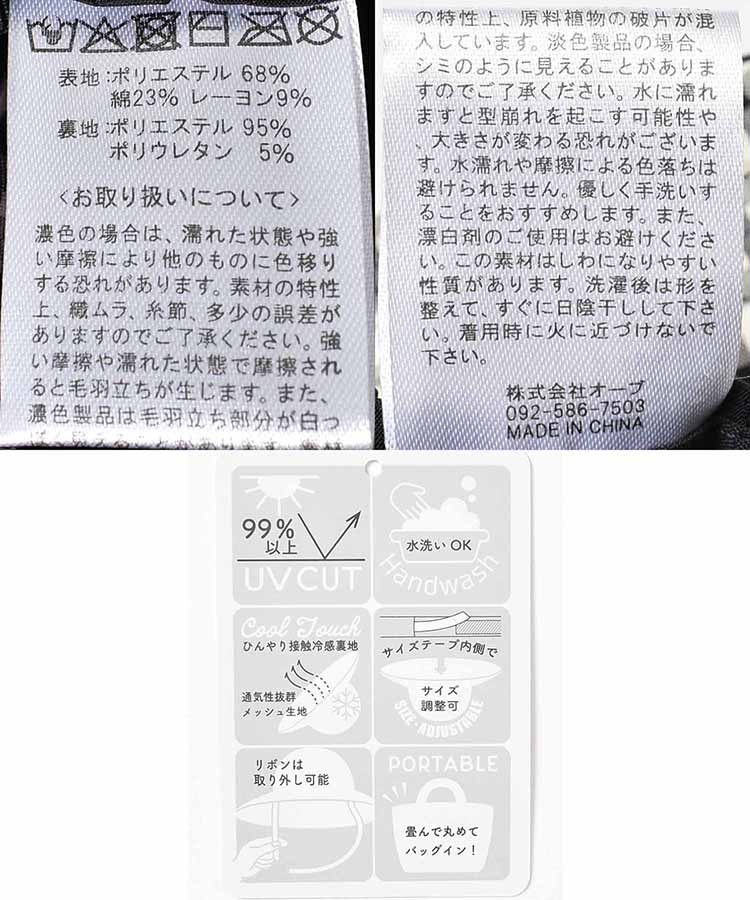 表地:ポリエステル 68%
綿23% レーヨン9%
裏地:ポリエステル 95%
ポリウレタン 5%
<お取り扱いについて>
濃色の場合は、濡れた状態や強
い摩擦により他のものに色移り
する恐れがあります。素材の特性
上、織ムラ、糸節、多少の誤差が
ありますのでご了承ください。強
い摩擦や濡れた状態で摩擦され
ると毛羽立ちが生じます。また、
濃色製品は毛羽立ち部分が白っ
の特性上、原料植物の破片が混
入しています。淡色製品の場合、
シミのように見えることがありま
すのでご了承ください。水に濡れ
ますと型崩れを起こす可能性や
、大きさが変わる恐れがございま
す。水濡れや摩擦による色落ちは
避けられません。優しく手洗いす
ることをおすすめします。また、
漂白剤のご使用はお避けくださ
い。この素材はしわになりやすい
性質があります。洗濯後は形を
整えて、すぐに日陰干しして下さ
い。着用時に火に近づけないで
下さい。
株式会社オーブ
092-586-7503
MADE IN CHINA
99%
以上
UV CUT
水洗い OK
Handwash
Cool Touch
ひんやり接触冷感裏地
通気性抜群
メッシュ生地
サイズテープ内側で
サイズ
調整可
SIZE・ADJUSTABLE
リボンは
取り外し可能
PORTABLE
畳んで丸めて
バッグイン!